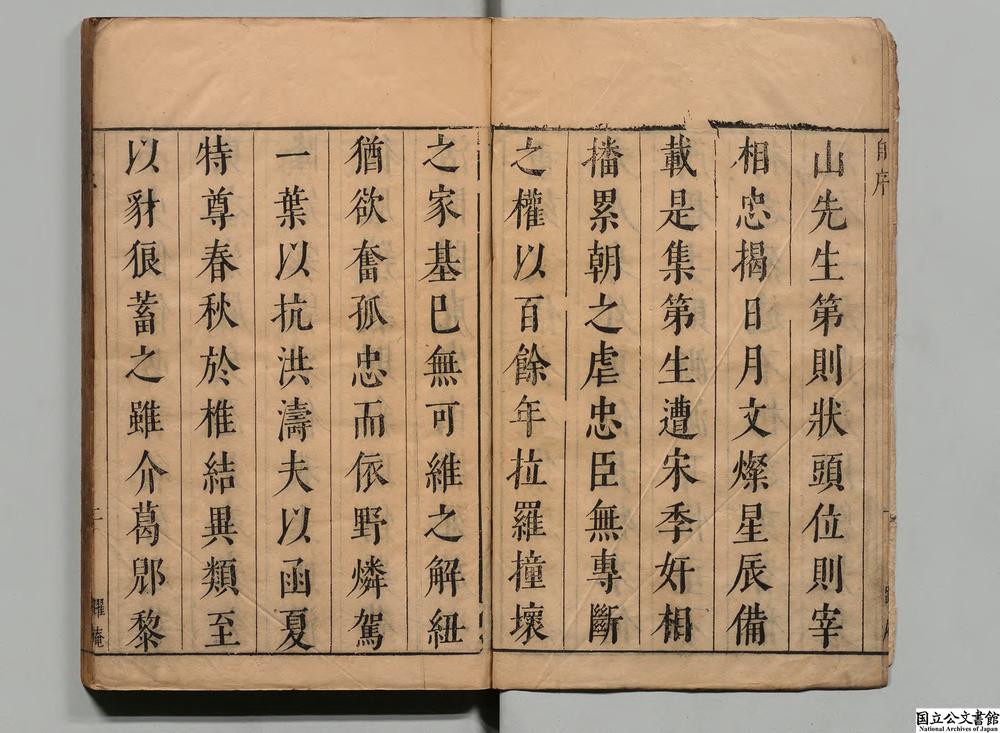 山先生第則狀頭位則宰
相忠揭日月文燦星辰備
載是集第生遭宋季奸相
播累朝之虐忠臣無專斷
之權以百餘年拉羅撞壞
之家基已無可維之解紐
猶欲奮孤忠而依野燐駕
一葉以抗洪濤夫以函夏
特尊春秋於椎結異類至
以豺狼蓄之雖介葛郧黎
二
躍庵
国立公文書館
National Archives of Japan